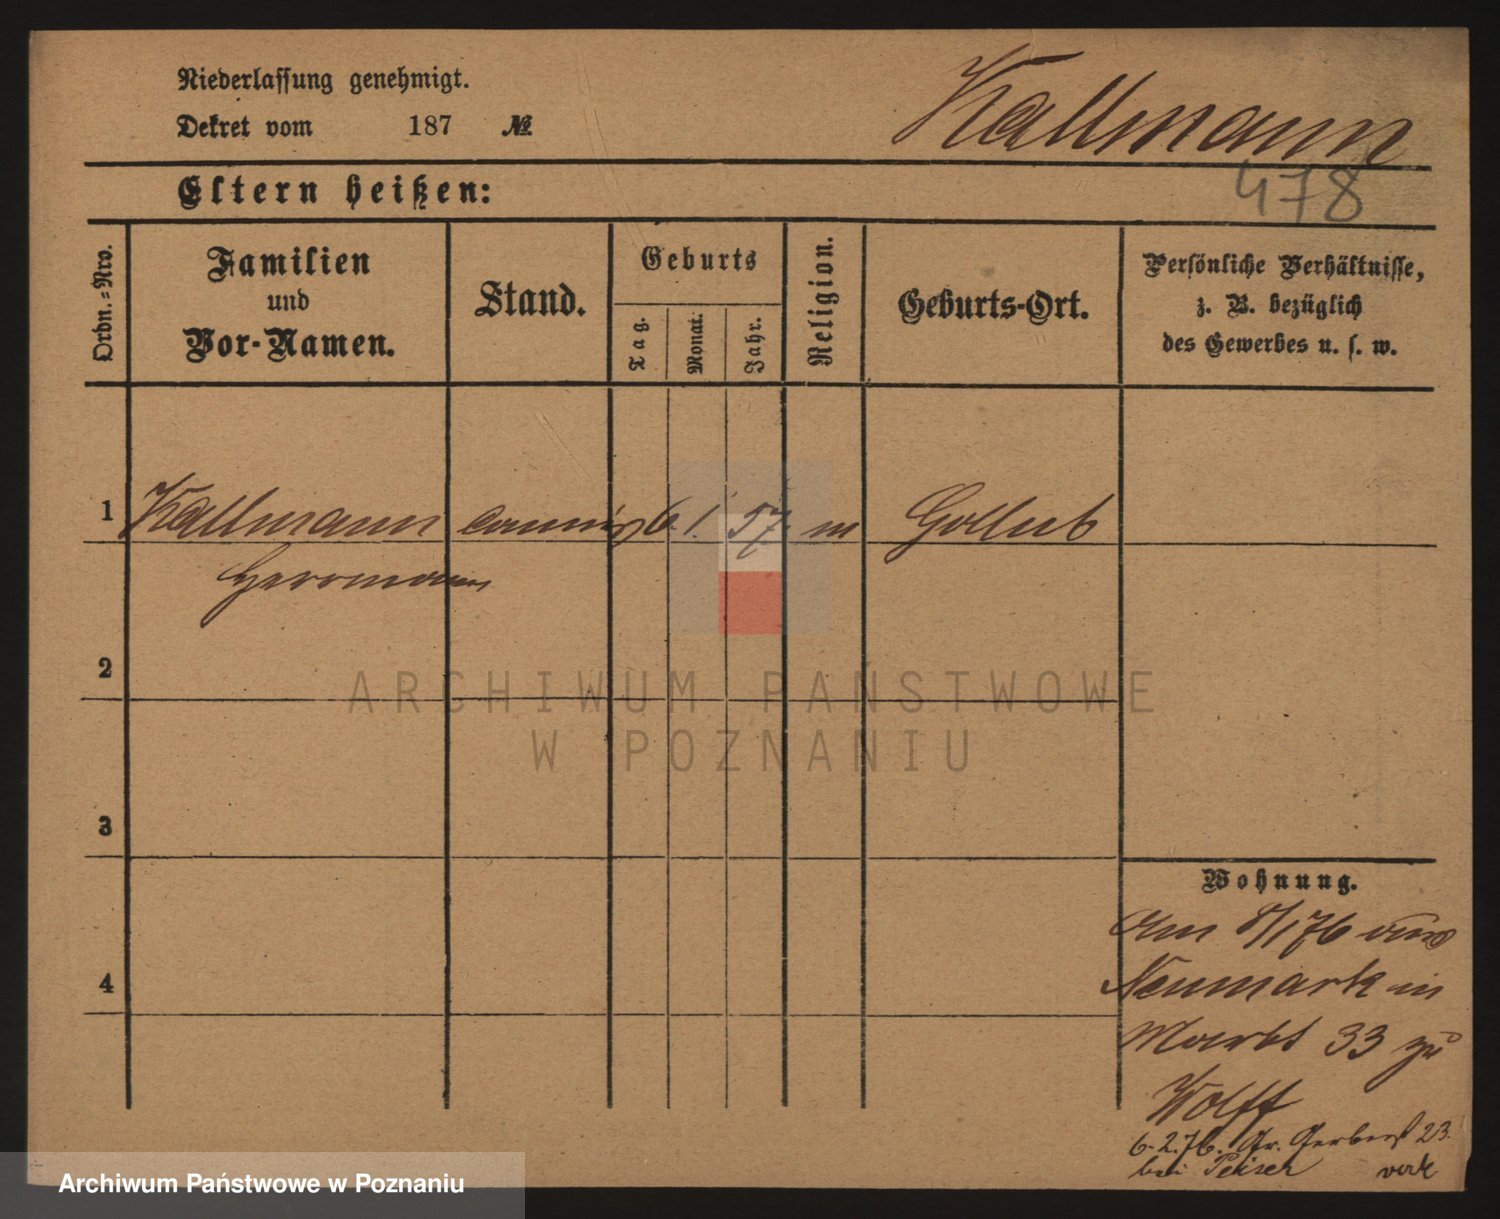 Niederlassung genehmigt.
Dekret vom 187 №
Kallmann
478
Eltern heißen:
Ordn.-Nro.
Familien
und
Vor-Namen.
Stand.
Geburts
Tag.
Monat.
Jahr.
Religion.
Geburts-Ort.
Persönliche Verhältnisse,
z. B. bezüglich
des Gewerbes u. s. w.
1 Kallmann Commis 6. 1. 57. m Gollub
Herrmann
2
3
4
Wohnung.
Am 8/1 76 aus
Neumark in
Markt 33 zu
Wolff
6.2.76. Gr. Gerberst 23.
bei Peiser
ARCHIWUM PAŃSTWOWE
W POZNANIU
Archiwum Państwowe w Poznaniu